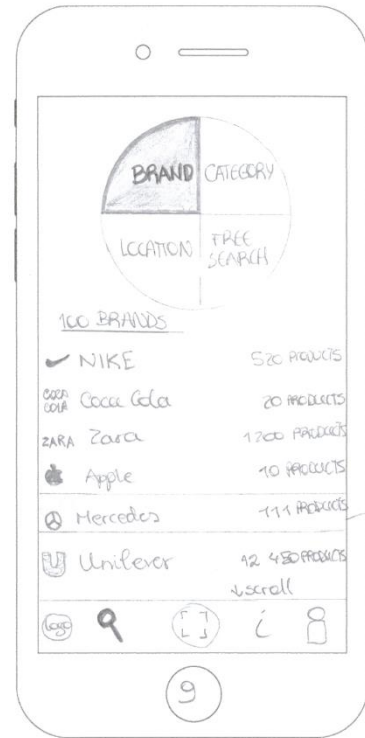 BRAND CATEGORY
LOCATION FREE
SEARCH
100 BRANDS
NIKE 520 PRODUCTS
COCA
COLA Coca Cola 20 PRODUCTS
ZARA Zara 1200 PRODUCTS
Apple 10 PRODUCTS
Mercedes 111 PRODUCTS
U Unilever 12 450 PRODUCTS
↓scroll
logo i
9